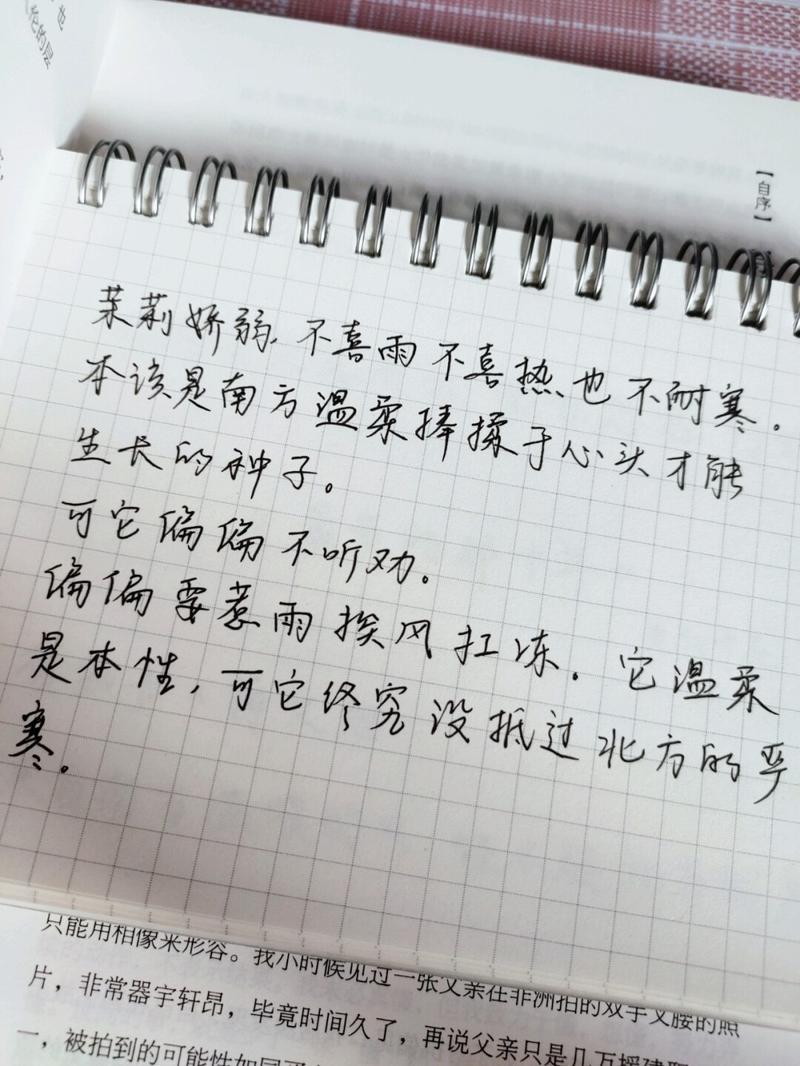 也
伦的层
【自序】
茉莉娇弱,不喜雨不喜热也不耐寒。
本该是南方温柔捧揉于心头才能
生长的种子。
可它偏偏不听劝。
偏偏要惹雨挨风扛冻。它温柔
是本性,可它终究没抵过北方的严
寒。
只能用相像来形容。我小时候见过一张父亲在非洲拍的双手叉腰的照
片,非常器宇轩昂,毕竟时间久了,再说父亲只是几万援建
一,被拍到的可能性如同